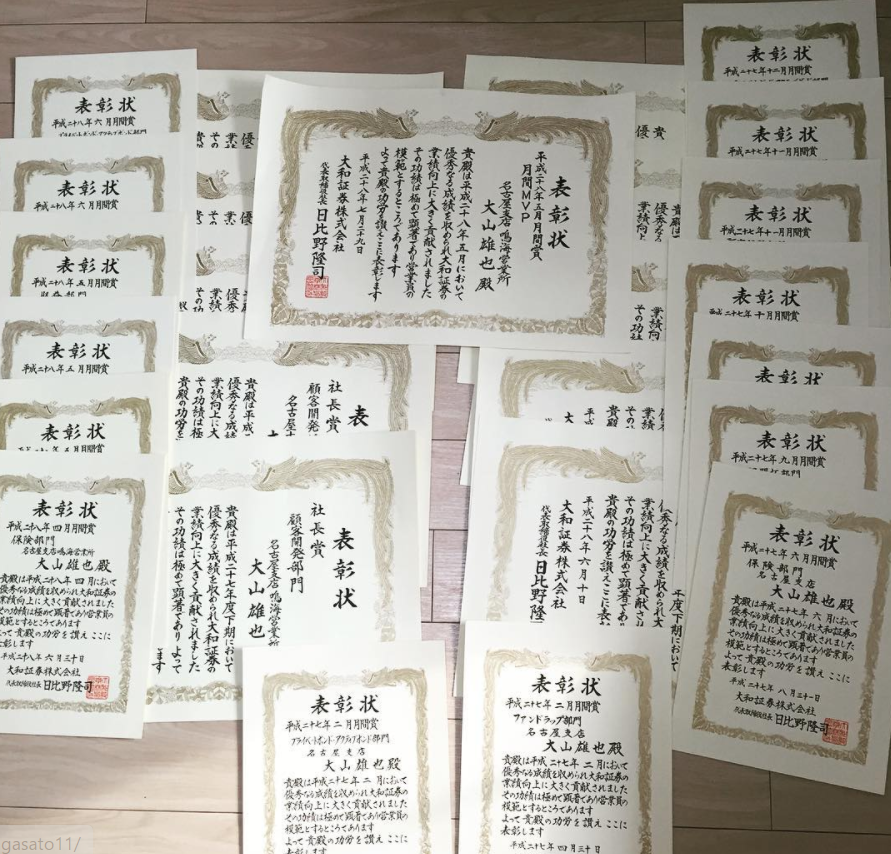 表彰状
平成二十八年六月月間賞
表彰状
平成二十八年六月月間賞
表彰状
平成二十八年五月月間賞
表彰状
平成二十八年五月月間賞
表彰状
表彰状
平成二十八年四月月間賞
保険部門
名古屋支店鳴海営業所
大山雄也殿
貴殿は平成二十八年四月において
優秀なる成績を収められ大和証券の
業績向上に大きく貢献されました
その功績は極めて顕著であり営業員の
模範とするところであります
よって貴殿の功労を讃えここに
表彰します
平成二十八年六月三十日
大和証券株式会社
代表取締役社長 日比野隆司
表彰状
平成二十八年五月月間賞
月間MVP
名古屋支店鳴海営業所
大山雄也殿
貴殿は平成二十八年五月において
優秀なる成績を収められ大和証券の
業績向上に大きく貢献されました
その功績は極めて顕著であり営業員の
模範とするところであります
よって貴殿の功労を讃えここに表彰します
平成二十八年七月二十九日
大和証券株式会社
代表取締役社長 日比野隆司
表
社長賞
顧客開発
名古
貴殿は平成二
優秀なる成績
業績向上に大
その功績は極
貴殿の功労を
表彰状
社長賞
顧客開発部門
名古屋支店 鳴海営業所
大山雄也
貴殿は平成二十七年度下期におい
優秀なる成績を収められ大和証券の
業績向上に大きく貢献されました
その功績は極めて顕著でありよって
ます
優秀なる成績を収められ大
業績向上に大きく貢献さ
その功績は極めて顕著であ
貴殿の功労を讃えここに表
平成二十八年六月十日
大和証券株式会社
代表取締役社長 日比野隆
年度下期において
表彰状
平成二十七年二月月間賞
プライベートボンド・アクティブボンド部門
名古屋支店
大山雄也殿
貴殿は平成二十七年二月において
優秀なる成績を収められ大和証券の
業績向上に大きく貢献されました
その功績は極めて顕著であり営業員の
模範とするところであります
よって貴殿の功労を讃えここに
表彰します
表彰状
平成二十七年二月月間賞
ファンドラップ部門
名古屋支店
大山雄也殿
貴殿は平成二十七年二月において
優秀なる成績を収められ大和証券の
業績向上に大きく貢献されました
その功績は極めて顕著であり営業員の
模範とするところであります
よって貴殿の功労を讃えここに
表彰します
平成二十七年四月三十日
表彰状
平成二十七年十二月月間賞
表彰状
平成二十七年十一月月間賞
表彰状
平成二十七年十一月月間賞
表彰状
平成二十七年十月月間賞
表彰状
表彰状
平成二十七年九月月間賞
表彰状
平成二十七年六月月間賞
保険部門
名古屋支店
大山雄也殿
貴殿は平成二十七年六月において
優秀なる成績を収められ大和証券の
業績向上に大きく貢献されました
その功績は極めて顕著であり営業員の
模範とするところであります
よって貴殿の功労を讃えここに
表彰します
平成二十七年八月三十一日
大和証券株式会社
代表取締役社長 日比野隆司
gasato11/